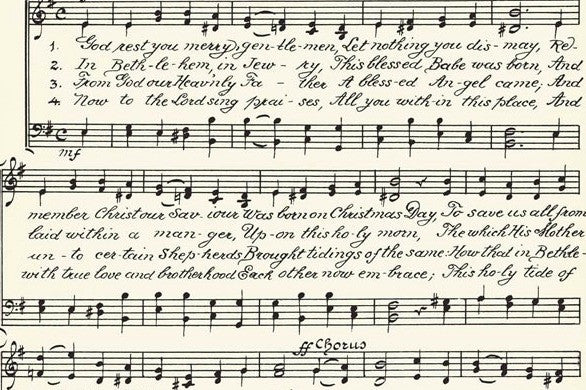 1. God rest you merry, gen-tle-men, Let nothing you dis-may, Re-
2. In Beth-le-hem, in Jew-ry, This blessed Babe was born, And
3. From God our Heav'nly Fa-ther A bless-ed An-gel came; And
4. Now to the Lord sing prai-ses, All you with-in this place, And
mf
member Christ our Sav-iour Was born on Christmas Day, To save us all from
laid within a man-ger, Up-on this ho-ly morn, The which His Mother
un-to cer-tain Shep-herds Brought tidings of the same: How that in Bethle-
with true love and brotherhood Each other now em-brace; This ho-ly tide of
ff Chorus